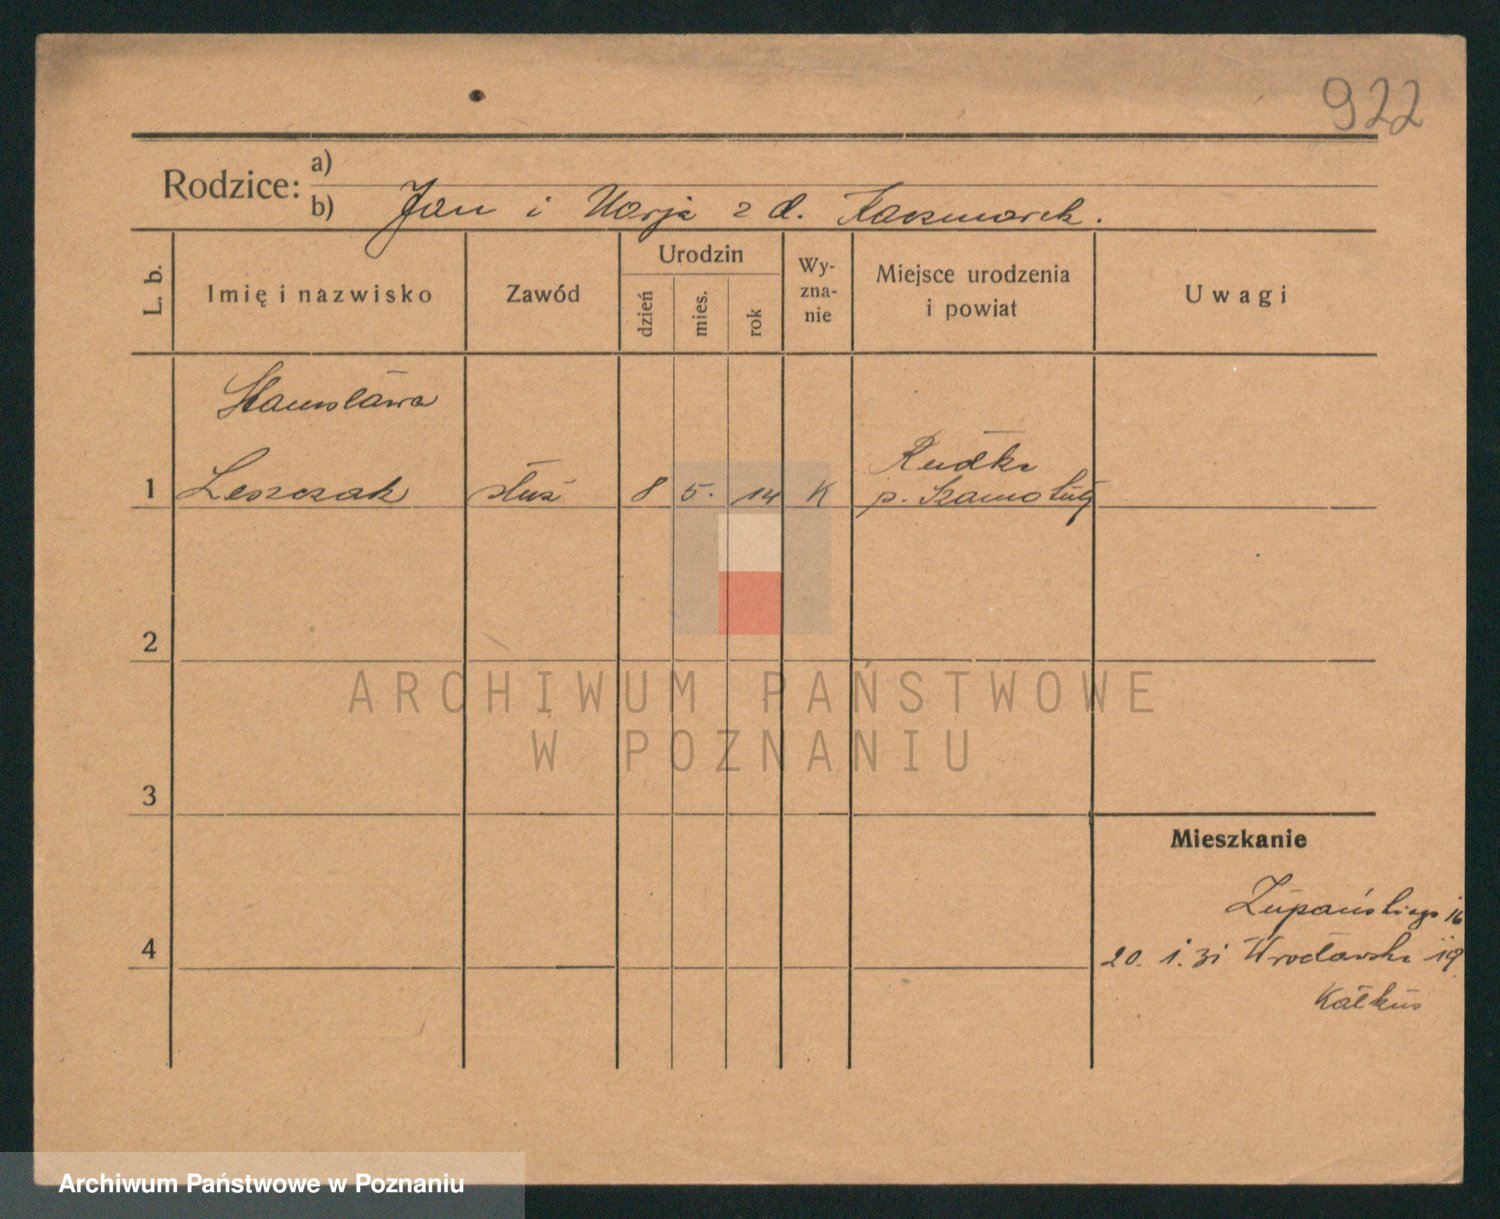 922
Rodzice:
a)
b) Jan i Marja z d. Kaczmarek.
L. b.
Imię i nazwisko
Zawód
Urodzin
dzień
mies.
rok
Wy-
zna-
nie
Miejsce urodzenia
i powiat
Uwagi
Stanisława
1 Leszczak służ 8 5. 14 K
Rudki
p. Szamotuły
2
3
4
Mieszkanie
Żupańskiego 16
20. 1. 31 Wrocławska 19
ARCHIWUM PAŃSTWOWE
W POZNANIU
Archiwum Państwowe w Poznaniu